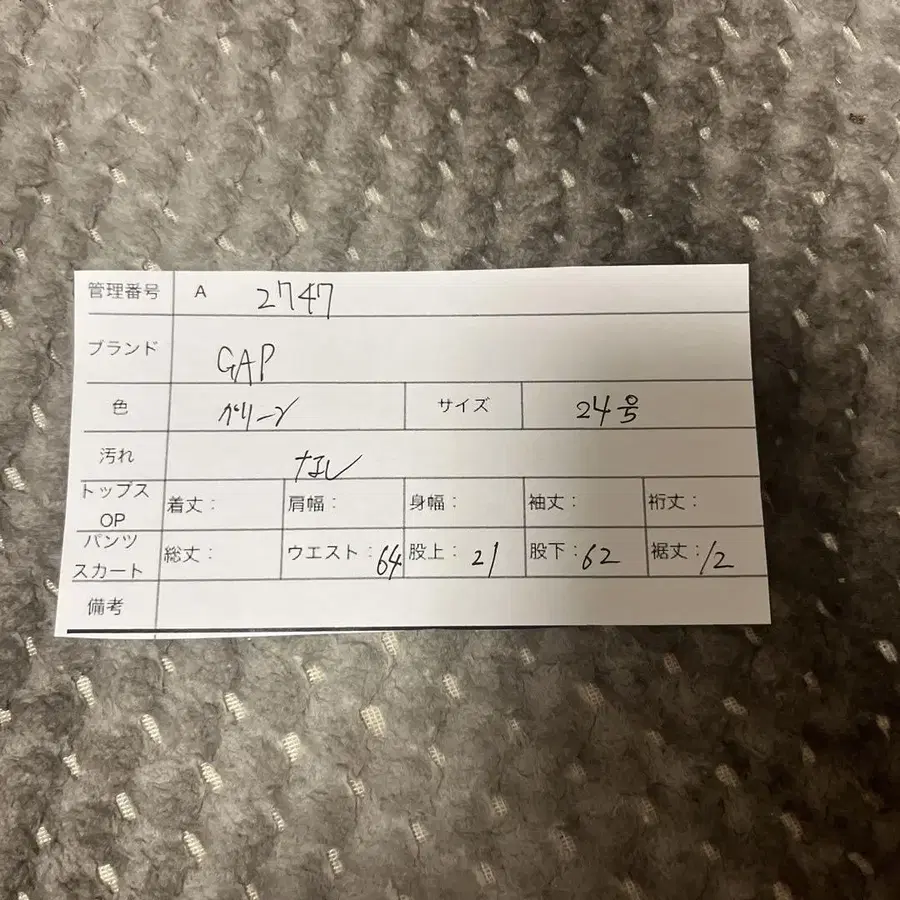 管理番号 A 2747
ブランド GAP
色 グリーン サイズ 24号
汚れ なし
トップス OP 着丈: 肩幅: 身幅: 袖丈: 裄丈:
パンツ スカート 総丈: ウエスト:64 股上:21 股下:62 裾丈:12
備考